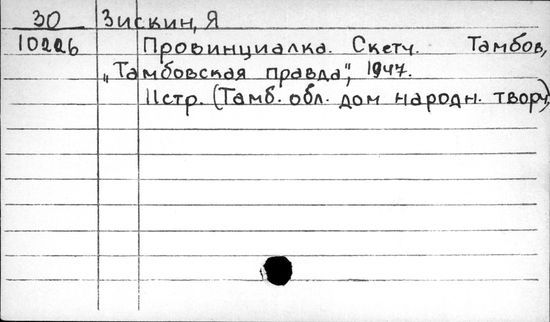 30 Зискин, Я
10226 Провинциалка. Скетч. Тамбов,
„Тамбовская правда", 1947.
11стр. (Тамб. обл. дом народн. творч)